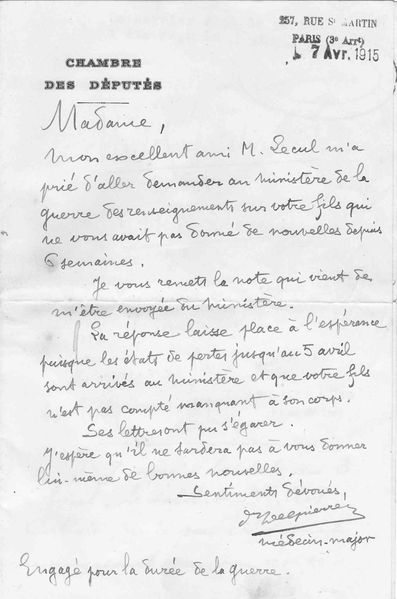 257, RUE St MARTIN
PARIS (3e Arrt)
7 Avr. 1915
CHAMBRE
DES DÉPUTÉS
Madame,
Mon excellent ami M. Lecul m'a
prié d'aller demander au ministère de la
guerre des renseignements sur votre fils qui
ne vous avait pas donné de nouvelles depuis
6 semaines.
Je vous remets la note qui vient de
m'être envoyée du ministère.
La réponse laisse place à l'espérance
puisque les états de pertes jusqu'au 5 avril
sont arrivés au ministère et que votre fils
n'est pas compté manquant à son corps.
Ses lettres ont pu s'égarer.
J'espère qu'il ne tardera pas à vous donner
lui-même de bonnes nouvelles.
Sentiments dévoués,
médecin-major
Engagé pour la durée de la guerre.